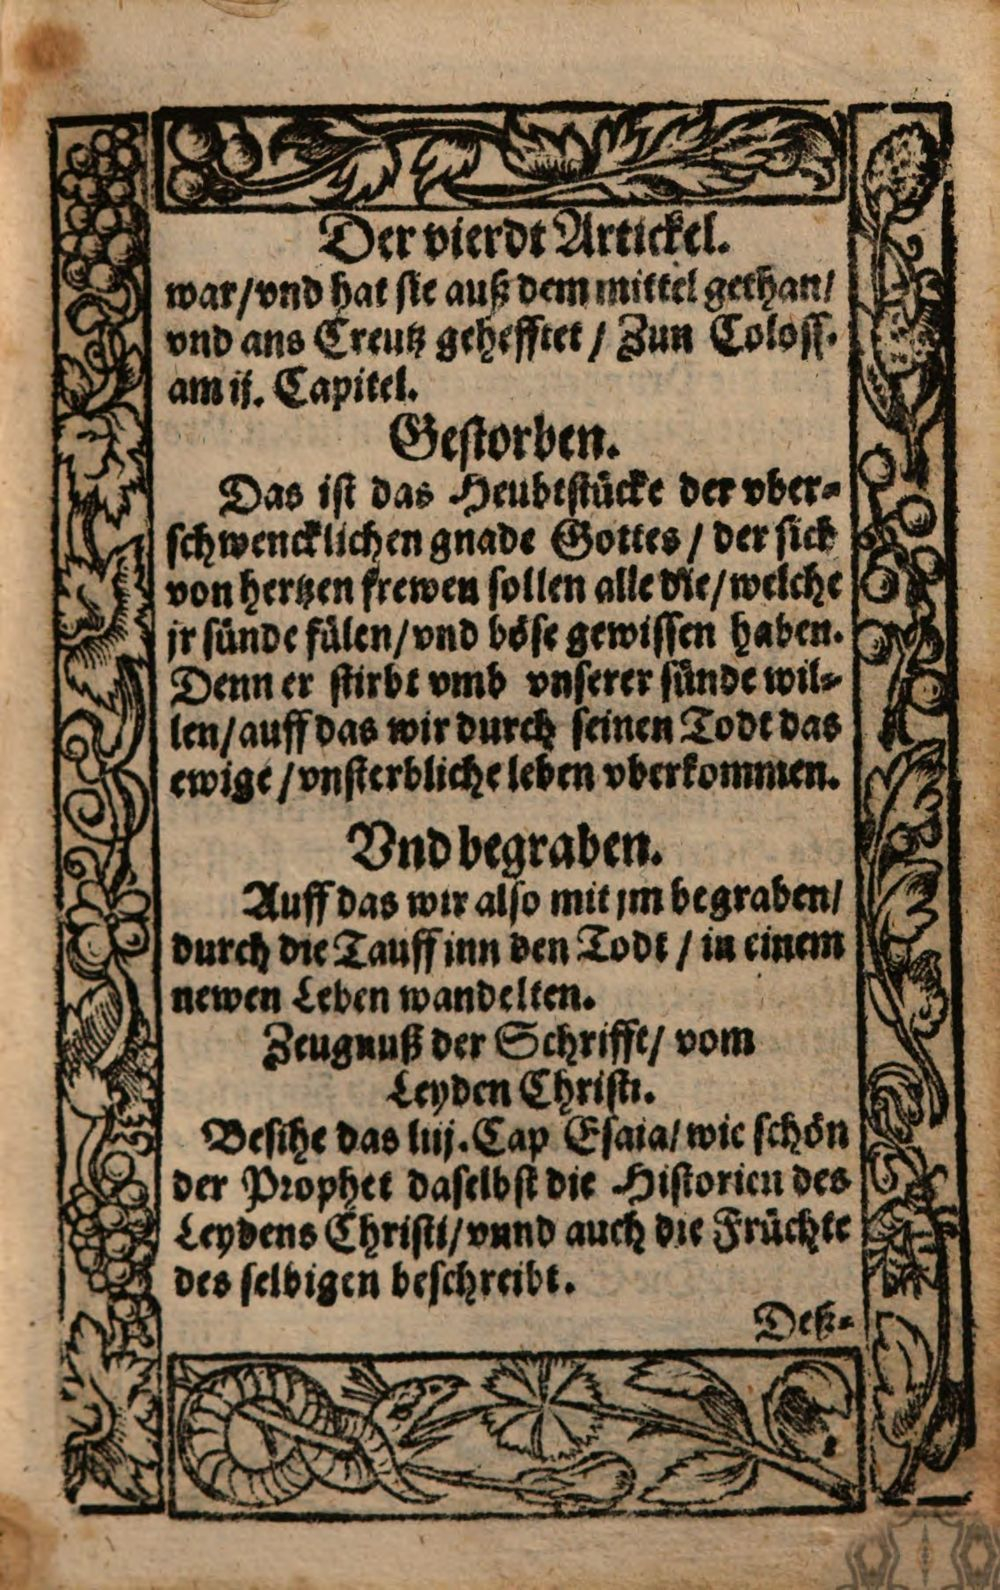 Der vierdt Artickel.
war/vnd hat sie auß dem mittel gethan/
vnd ans Creutz gehefftet / Zun Coloss.
am ij. Capitel.
Gestorben.
Das ist das Heubtstücke der vber-
schwencklichen gnade Gottes / der sich
von hertzen frewen sollen alle die/welche
jr sünde fülen/vnd böse gewissen haben.
Denn er stirbt vmb vnserer sünde wil-
len/auff das wir durch seinen Todt das
ewige /vnsterbliche leben vberkommen.
Vnd begraben.
Auff das wir also mit jm begraben/
durch die Tauff inn den Todt / in einem
newen Leben wandelten.
Zeugnuß der Schrifft/ vom
Leyden Christi.
Besihe das liij. Cap Esaia/wie schön
der Prophet daselbst die Historien des
Leydens Christi/vnnd auch die Früchte
des selbigen beschreibt.
Deß-